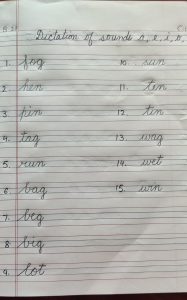 Dictation of sounds a, e, i, o,
1. fog
2. hen
3. pin
4. tag
5. run
6. bag
7. beg
8. big
9. lot
10. sun
11. ten
12. tin
13. wag
14. wet
15. win